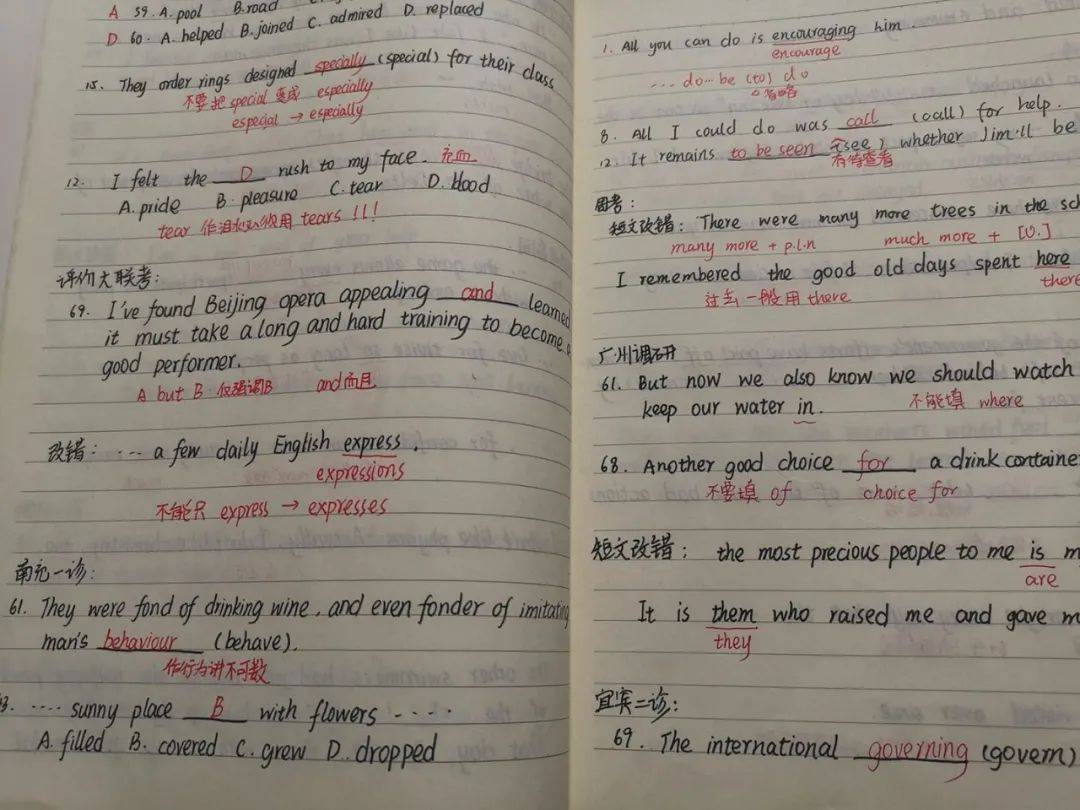 A 59. A. pool B. road
D 60. A. helped B. joined C. admired D. replaced
15. They order rings designed specially (special) for their class
不要把 special 变成 especially
especial → especially
12. I felt the D rush to my face. 充血
A. pride B. pleasure C. tear D. blood
tear 作泪水必须用 tears !!!
评价大联考:
69. I've found Beijing opera appealing and learned
it must take a long and hard training to become a
good performer.
A but B 仅强调B and而且
改错: ... a few daily English express.
expressions
不能只 express → expresses
南充一诊:
61. They were fond of drinking wine, and even fonder of imitating
man's behaviour (behave).
作行为讲不可数
3. .... sunny place B with flowers ....
A. filled B. covered C. grew D. dropped
1. All you can do is encouraging him.
encourage
... do... be (to) do
省略
8. All I could do was call (call) for help.
12. It remains to be seen (see), whether Jim'll be
有待查看
周考:
短文改错: There were many more trees in the sc
many more + p.l.n much more + [U.]
I remembered the good old days spent here
过去一般用 there there
广州调研
61. But now we also know we should watch
keep our water in. 不能填 where
68. Another good choice for a drink containe
不要填 of choice for
短文改错: the most precious people to me is m
are
It is them who raised me and gave m
they
宜宾二诊:
69. The international governing (govern)